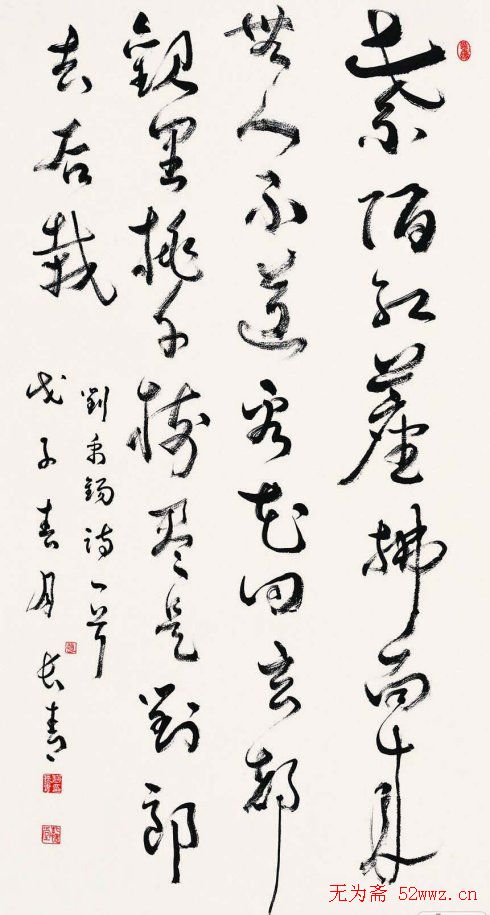 紫陌红尘拂面来
無人不道看花回玄都
觀里桃千樹尽是劉郎
去后栽
劉禹錫詩一首
戊子春月 长青
无为斋 52wwz.cn